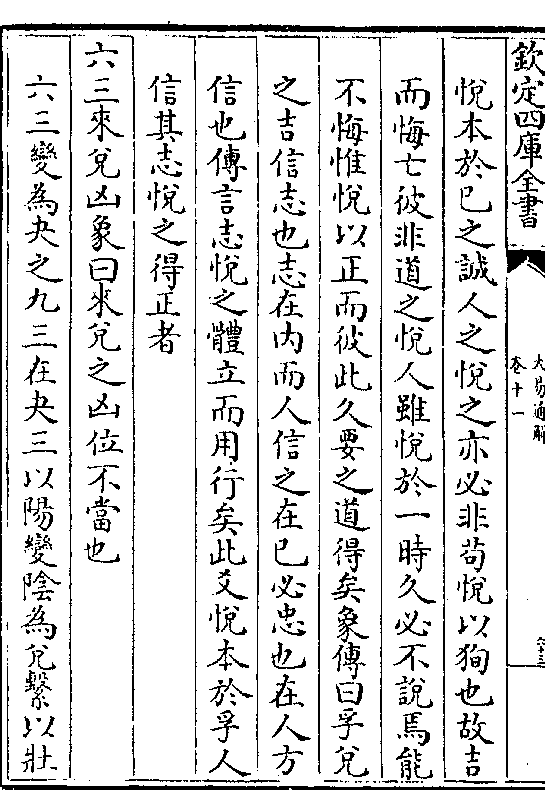 欽定四庫全書
大易通解
卷十一
六十三
悅本於已之誠人之悅之亦必非茍悅以狥也故吉
而悔亡彼非道之悅人雖悅於一時久必不說焉能
不悔惟悅以正而彼此久要之道得矣象傳曰孚兌
之吉信志也志在内而人信之在已必忠也在人方
信也傳言志悅之體立而用行矣此爻悅本於孚人
信其志悅之得正者
六三來兌凶象曰來兌之凶位不當也
六三變為夬之九三在夬三以陽變陰為兌繫以壯